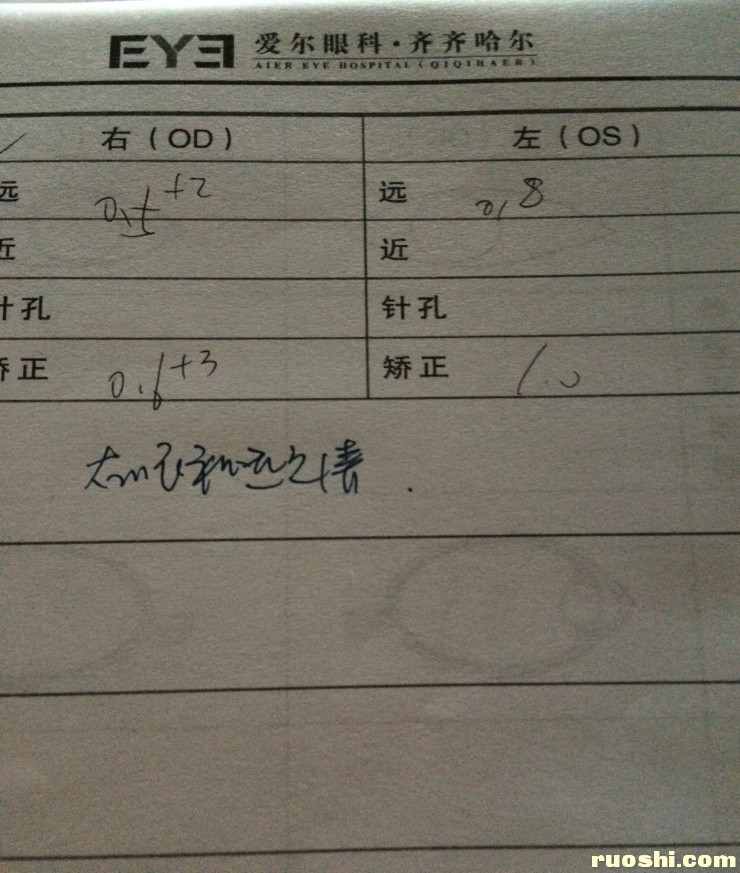 EYE 爱尔眼科·齐齐哈尔
AIER EYE HOSPITAL (QIQIHAER)
右 (OD) 左 (OS)
远 +2 远 0.8
近 近
针孔 针孔
矫正 0.6 +3 矫正 1.0
ruoshi.com